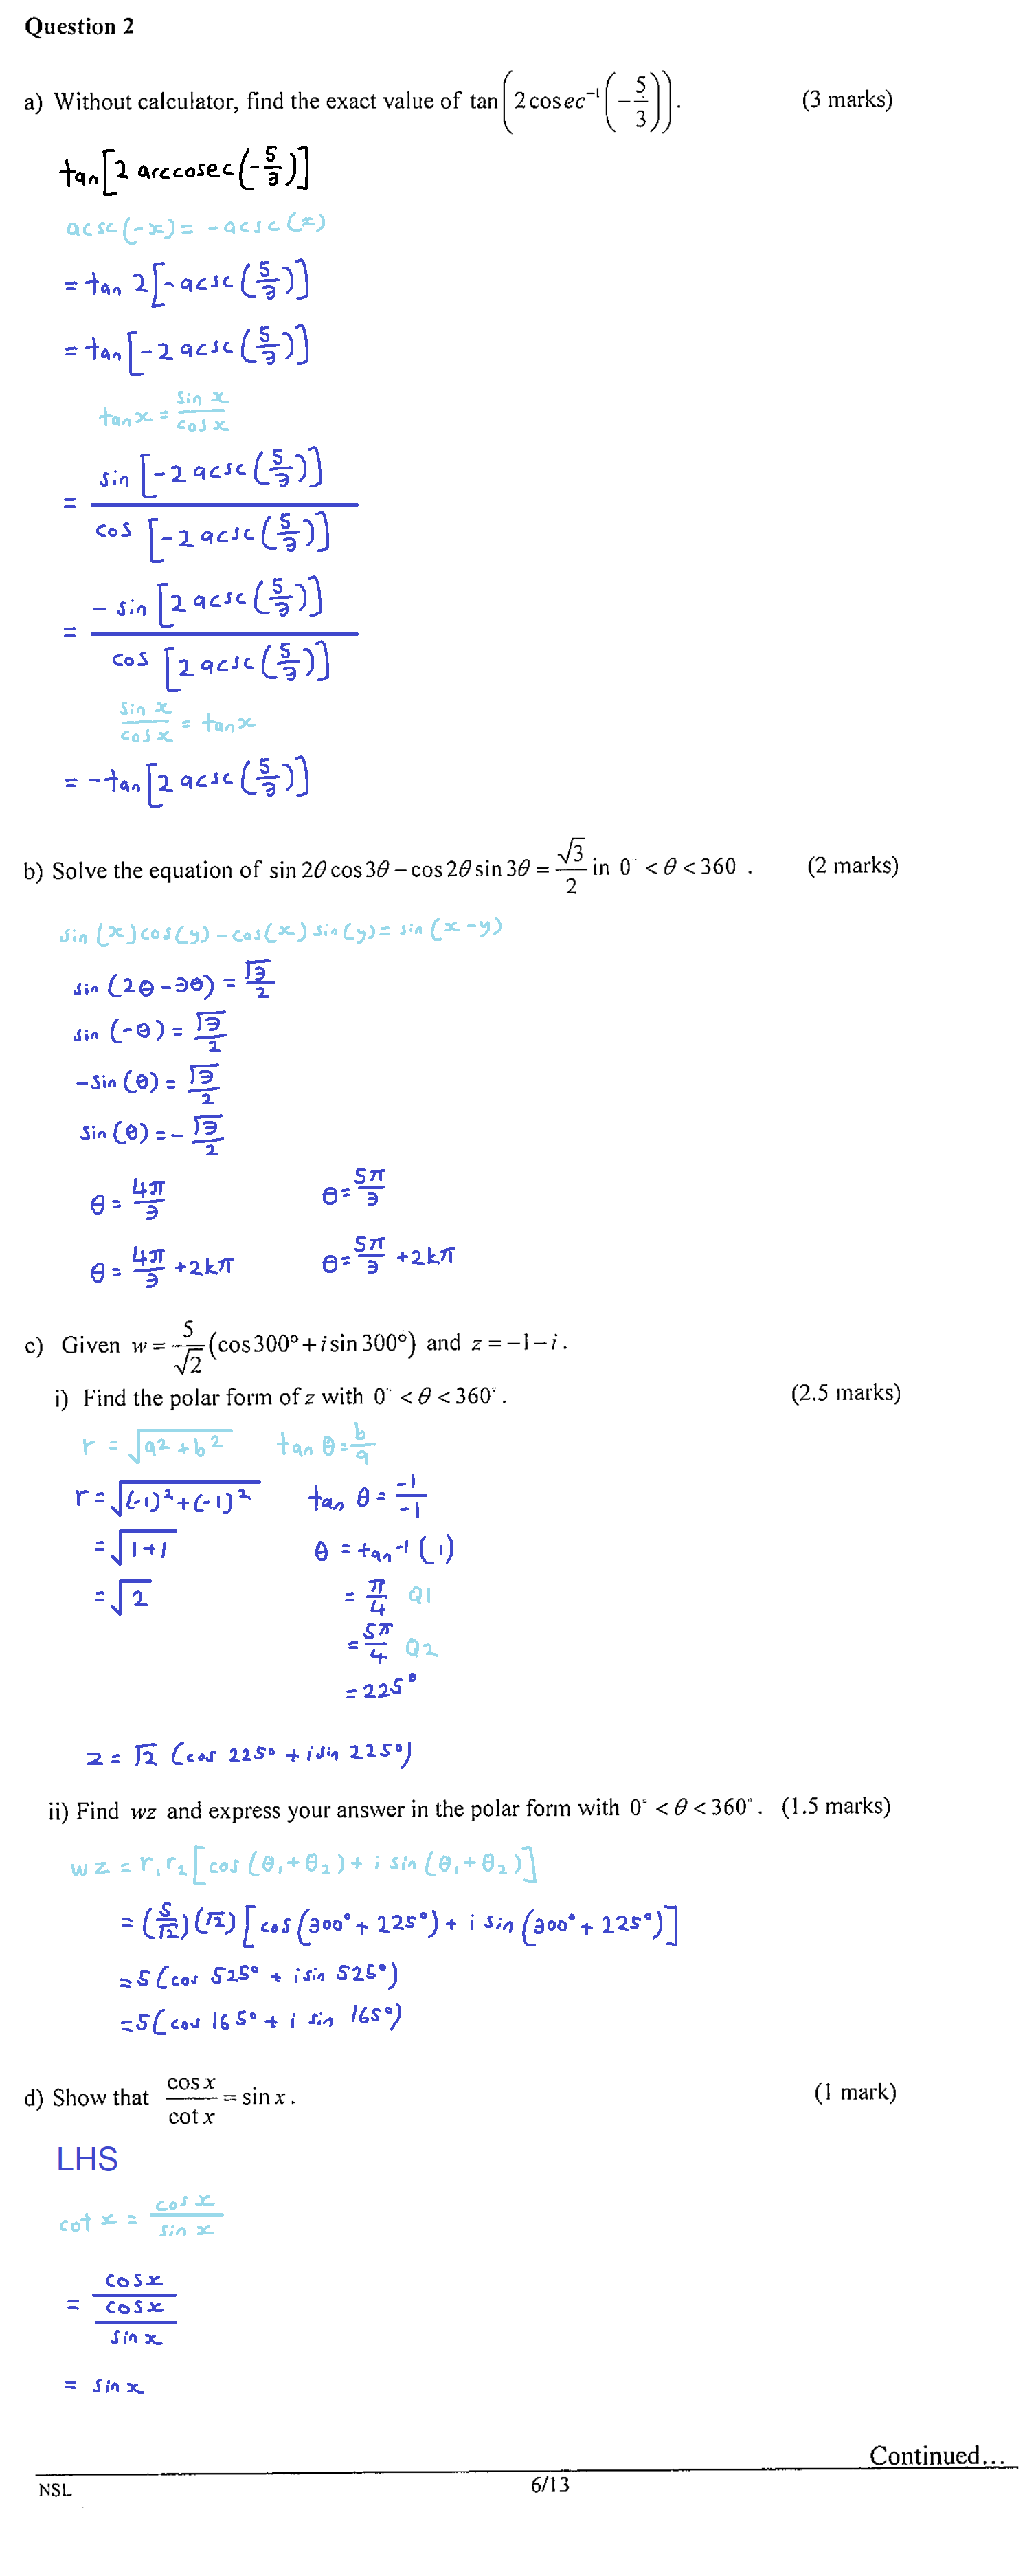 Question 2
a) Without calculator, find the exact value of tan(2cosec⁻¹(−5/3)). (3 marks)
tan[2 arccosec(-5/3)]
acsc(-x) = -acsc(x)
= tan 2[-acsc(5/3)]
= tan[-2 acsc(5/3)]
tan x = sin x / cos x
= sin[-2 acsc(5/3)] / cos[-2 acsc(5/3)]
= -sin[2 acsc(5/3)] / cos[2 acsc(5/3)]
sin x / cos x = tan x
= -tan[2 acsc(5/3)]
b) Solve the equation of sin 2θ cos 3θ − cos 2θ sin 3θ = √3/2 in 0° < θ < 360 . (2 marks)
sin(x)cos(y) - cos(x)sin(y) = sin(x-y)
sin(2θ-3θ) = √3/2
sin(-θ) = √3/2
-sin(θ) = √3/2
sin(θ) = -√3/2
θ = 4π/3 θ = 5π/3
θ = 4π/3 + 2kπ θ = 5π/3 + 2kπ
c) Given w = 5/√2 (cos 300° + i sin 300°) and z = −1 − i.
i) Find the polar form of z with 0° < θ < 360°. (2.5 marks)
r = √(a² + b²) tan θ = b/a
r = √((-1)² + (-1)²) tan θ = -1/-1
= √(1+1) θ = tan⁻¹(1)
= √2 = π/4 Q1
= 5π/4 Q2
= 225°
z = √2 (cos 225° + i sin 225°)
ii) Find wz and express your answer in the polar form with 0° < θ < 360°. (1.5 marks)
wz = r₁r₂[cos(θ₁+θ₂) + i sin(θ₁+θ₂)]
= (5/√2)(√2)[cos(300° + 225°) + i sin(300° + 225°)]
= 5(cos 525° + i sin 525°)
= 5(cos 165° + i sin 165°)
d) Show that cos x / cot x = sin x. (1 mark)
LHS
cot x = cos x / sin x
= cos x / (cos x / sin x)
= sin x
Continued...
NSL 6/13